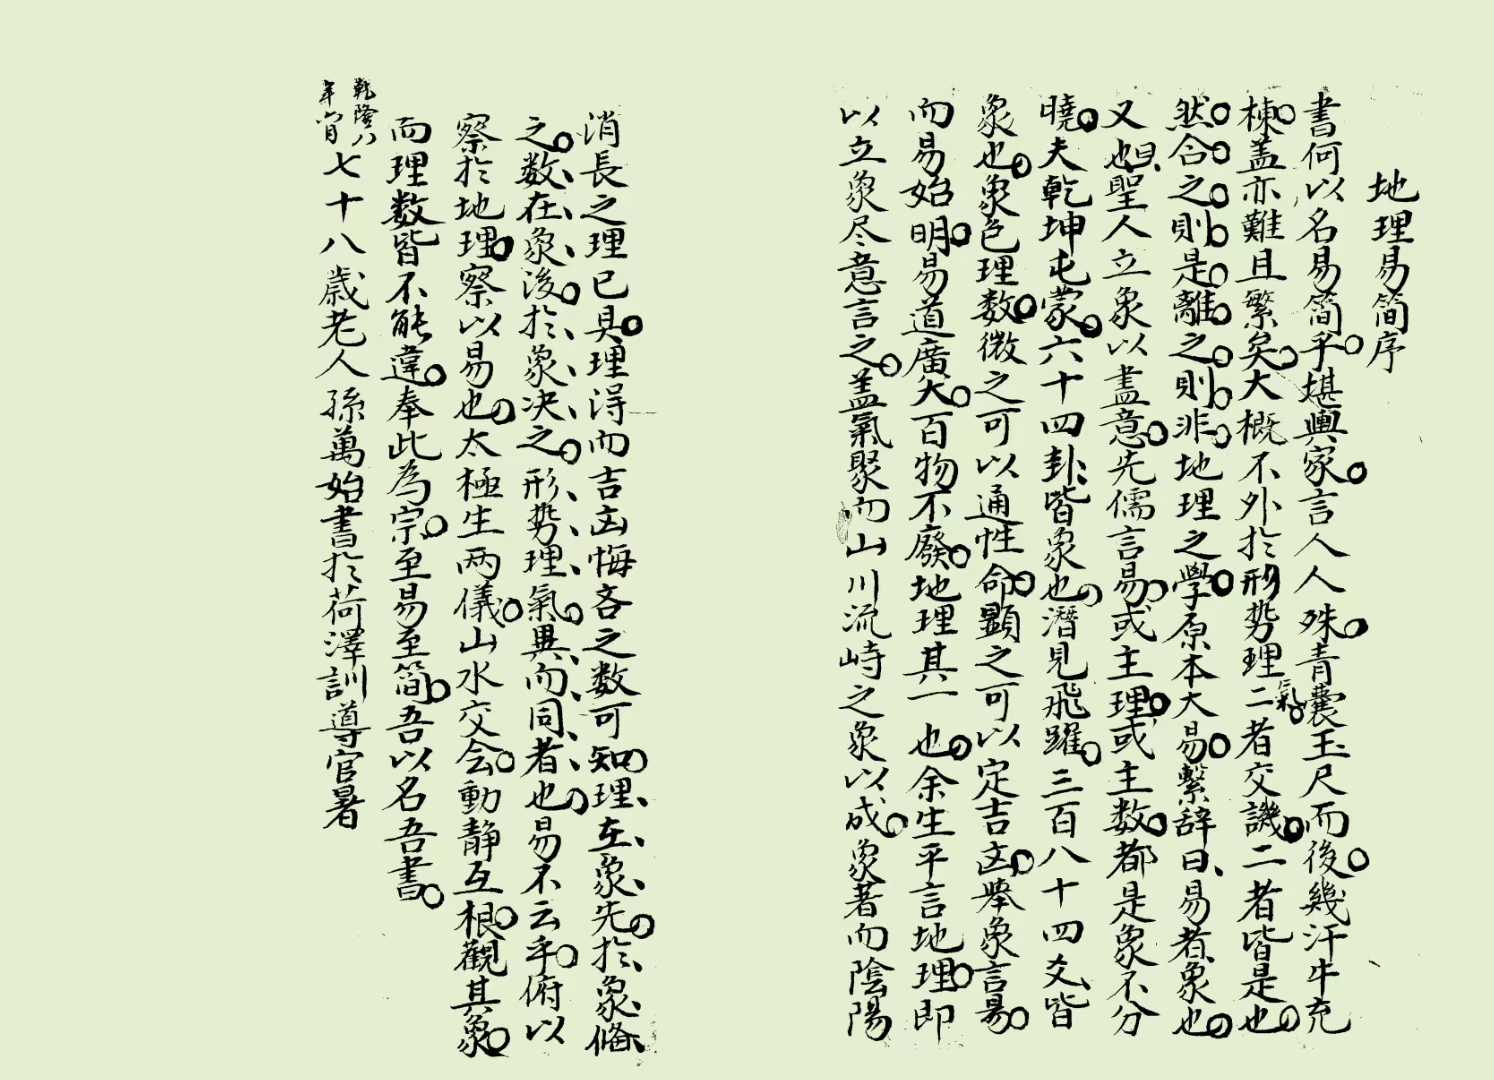 地理易简序
書何以名易简乎堪輿家言人人殊青囊玉尺而後幾汗牛充
棟盖亦難且繁矣大概不外於形势理氣二者交譏二者皆是也
然合之則是離之則非地理之學原本大易繫辞曰易者象也
又也聖人立象以盡意先儒言易或主理或主数都是象不分
曉夫乾坤屯蒙六十四卦皆象也潛見飛躍三百八十四爻皆
象也象包理数微之可以通性命顯之可以定吉凶舉象言易
而易始明易道廣矣百物不廢地理其一也余生平言地理即
以立象尽意言之盖氣聚而山川流峙之象以成象著而陰陽
消長之理已具理淂而吉凶悔吝之数可知理在象先於象偹
之数在象後於象决之形势理氣異而同者也易不云乎俯以
察於地理察以易也太極生两儀山水交会動静互根觀其象
而理数皆不能違奉此為宗至易至简吾以名吾書
乾隆八年六月七十八歳老人孫萬始書於荷澤訓導官署